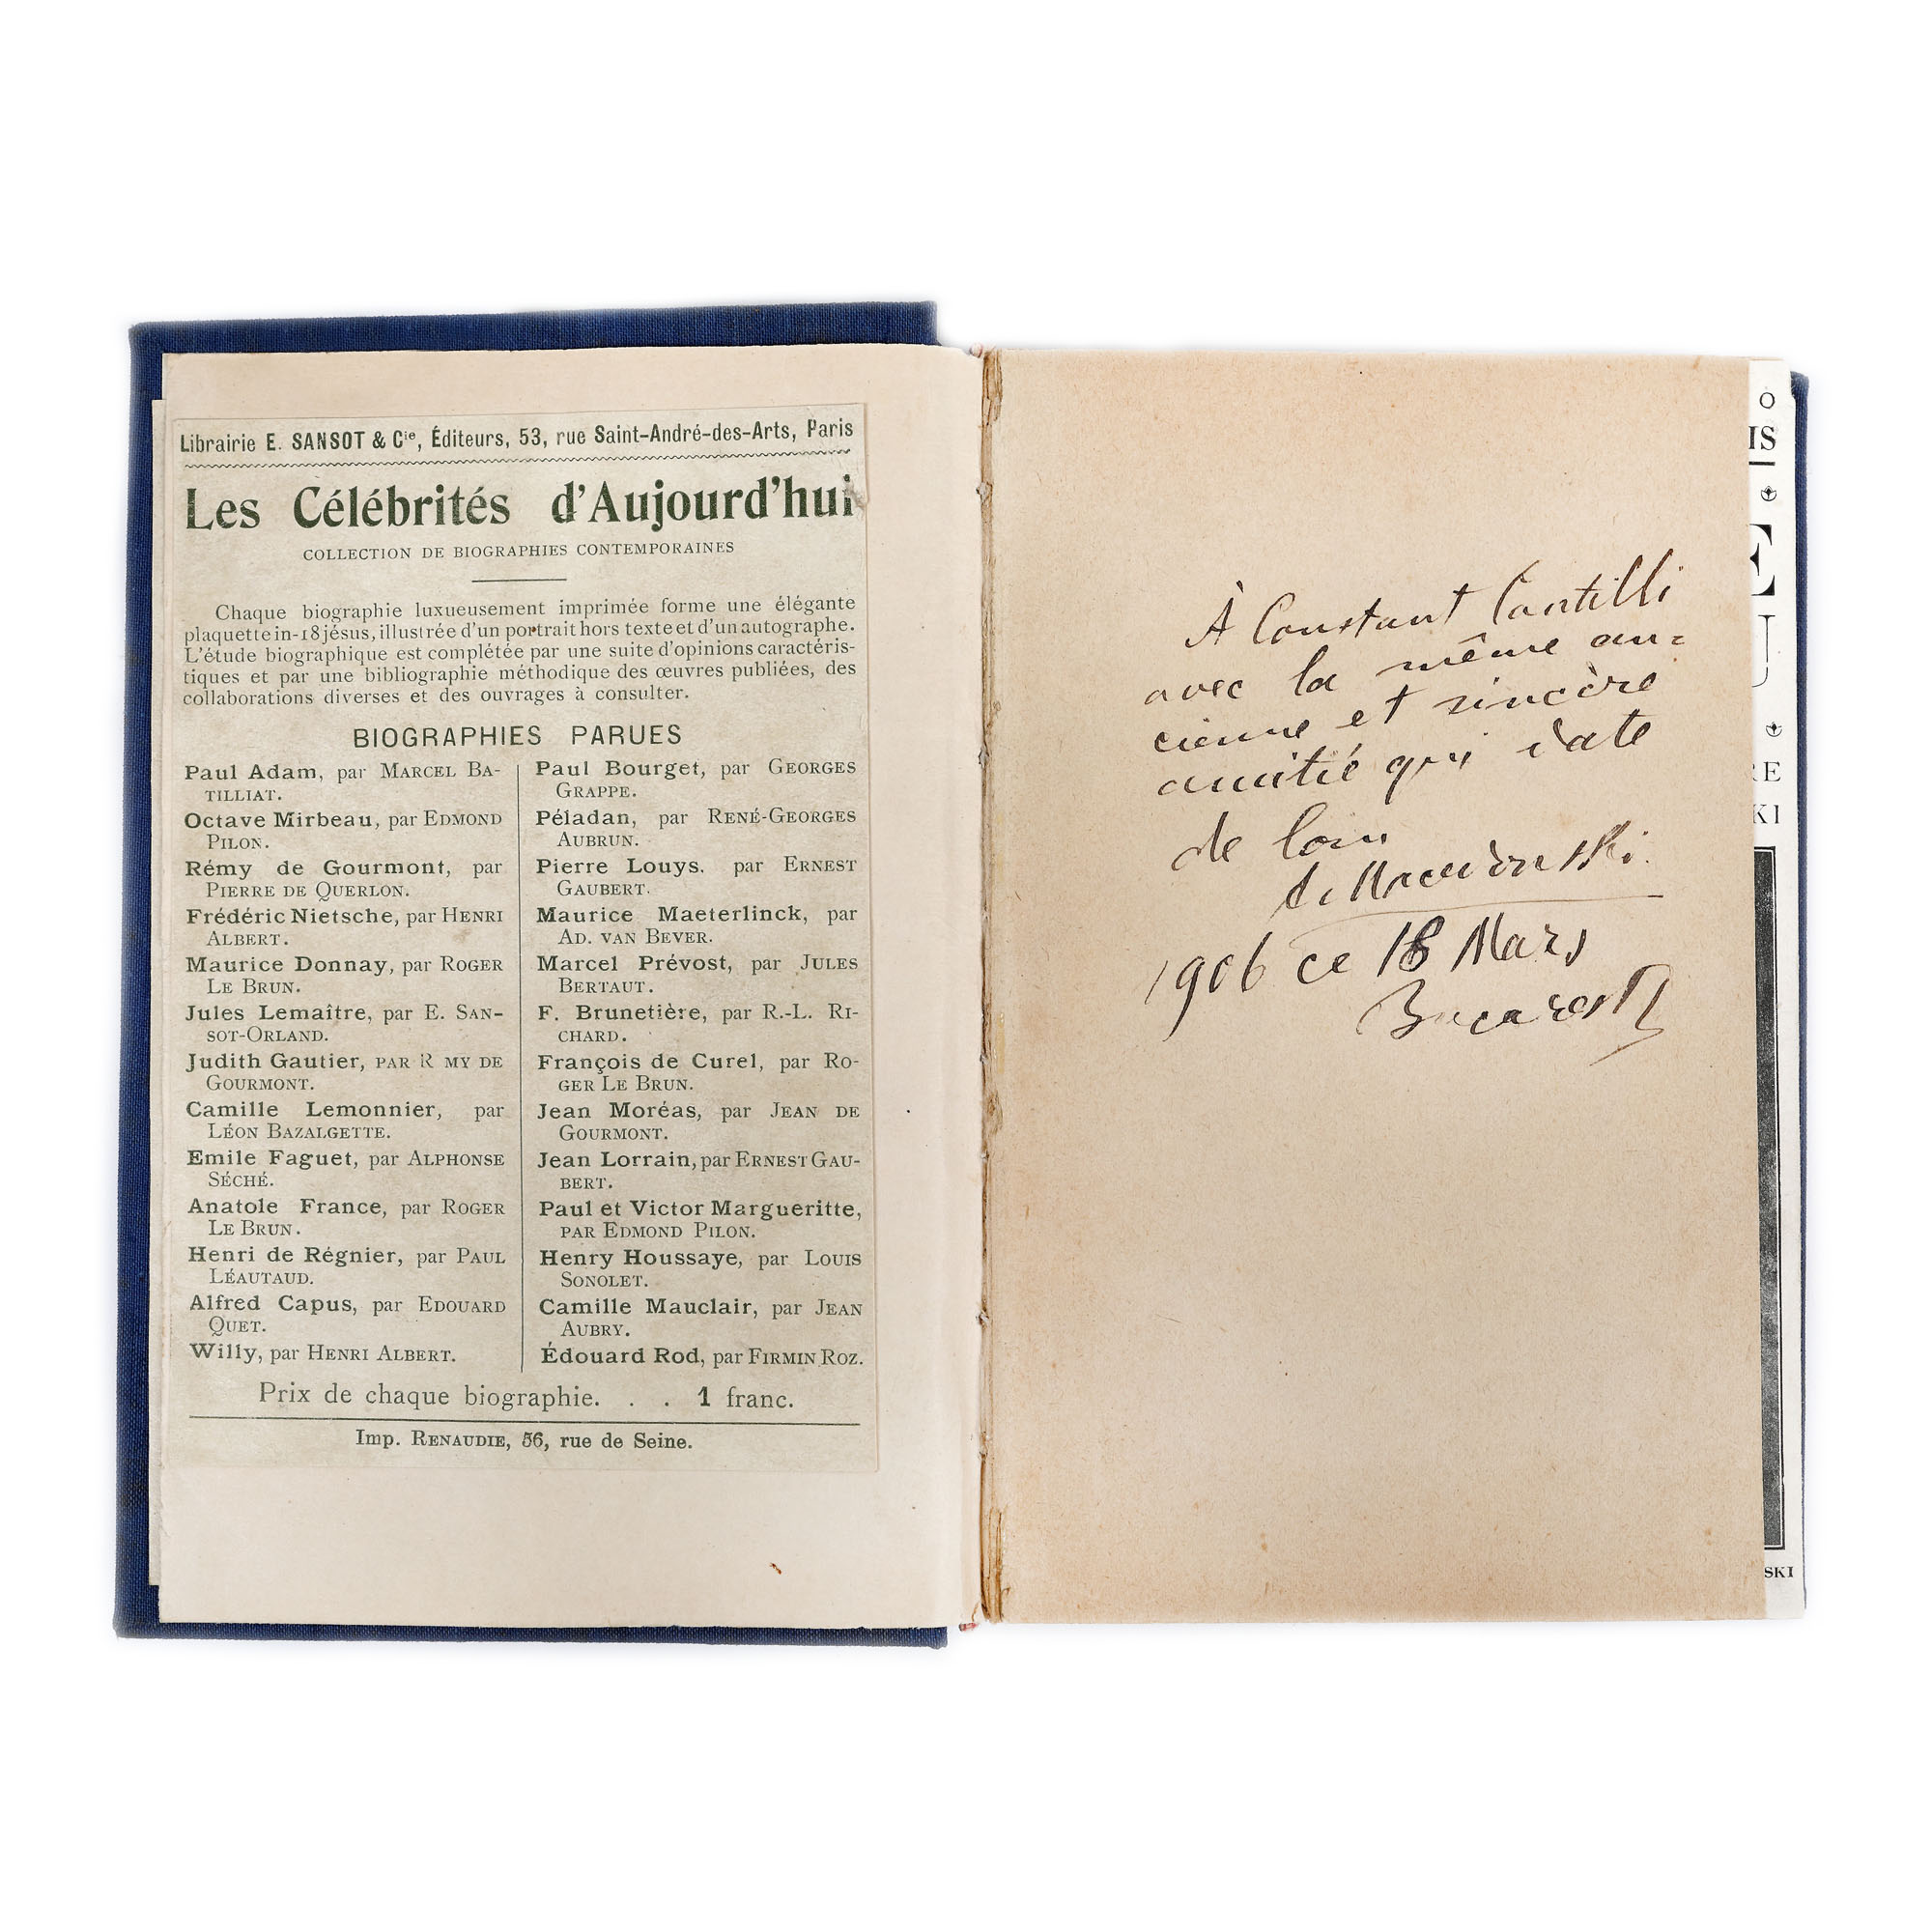 Librairie E. SANSOT & Cie, Éditeurs, 53, rue Saint-André-des-Arts, Paris
Les Célébrités d'Aujourd'hui
COLLECTION DE BIOGRAPHIES CONTEMPORAINES
Chaque biographie luxueusement imprimée forme une élégante
plaquette in-18 jésus, illustrée d'un portrait hors texte et d'un autographe.
L'étude biographique est complétée par une suite d'opinions caractéris-
tiques et par une bibliographie méthodique des œuvres publiées, des
collaborations diverses et des ouvrages à consulter.
BIOGRAPHIES PARUES
Paul Adam, par MARCEL BA-
TILLIAT.
Octave Mirbeau, par EDMOND
PILON.
Rémy de Gourmont, par
PIERRE DE QUERLON.
Frédéric Nietsche, par HENRI
ALBERT.
Maurice Donnay, par ROGER
LE BRUN.
Jules Lemaître, par E. SAN-
SOT-ORLAND.
Judith Gautier, PAR R MY DE
GOURMONT.
Camille Lemonnier, par
LÉON BAZALGETTE.
Emile Faguet, par ALPHONSE
SÉCHÉ.
Anatole France, par ROGER
LE BRUN.
Henri de Régnier, par PAUL
LÉAUTAUD.
Alfred Capus, par EDOUARD
QUET.
Willy, par HENRI ALBERT.
Paul Bourget, par GEORGES
GRAPPE.
Péladan, par RENÉ-GEORGES
AUBRUN.
Pierre Louys. par ERNEST
GAUBERT.
Maurice Maeterlinck, par
AD. VAN BEVER.
Marcel Prévost, par JULES
BERTAUT.
F. Brunetière, par R.-L. RI-
CHARD.
François de Curel, par RO-
GER LE BRUN.
Jean Moréas, par JEAN DE
GOURMONT.
Jean Lorrain, par ERNEST GAU-
BERT.
Paul et Victor Margueritte,
PAR EDMOND PILON.
Henry Houssaye, par LOUIS
SONOLET.
Camille Mauclair, par JEAN
AUBRY.
Édouard Rod, par FIRMIN ROZ.
Prix de chaque biographie. . . 1 franc.
Imp. RENAUDIE, 56, rue de Seine.
À Constant Cantilli
avec la même an=
cienne et sincère
amitié qui date
de loin
Al. Macedonski
1906 ce 18 Mars
Bucarest
O
IS
E
U
RE
KI
SKI